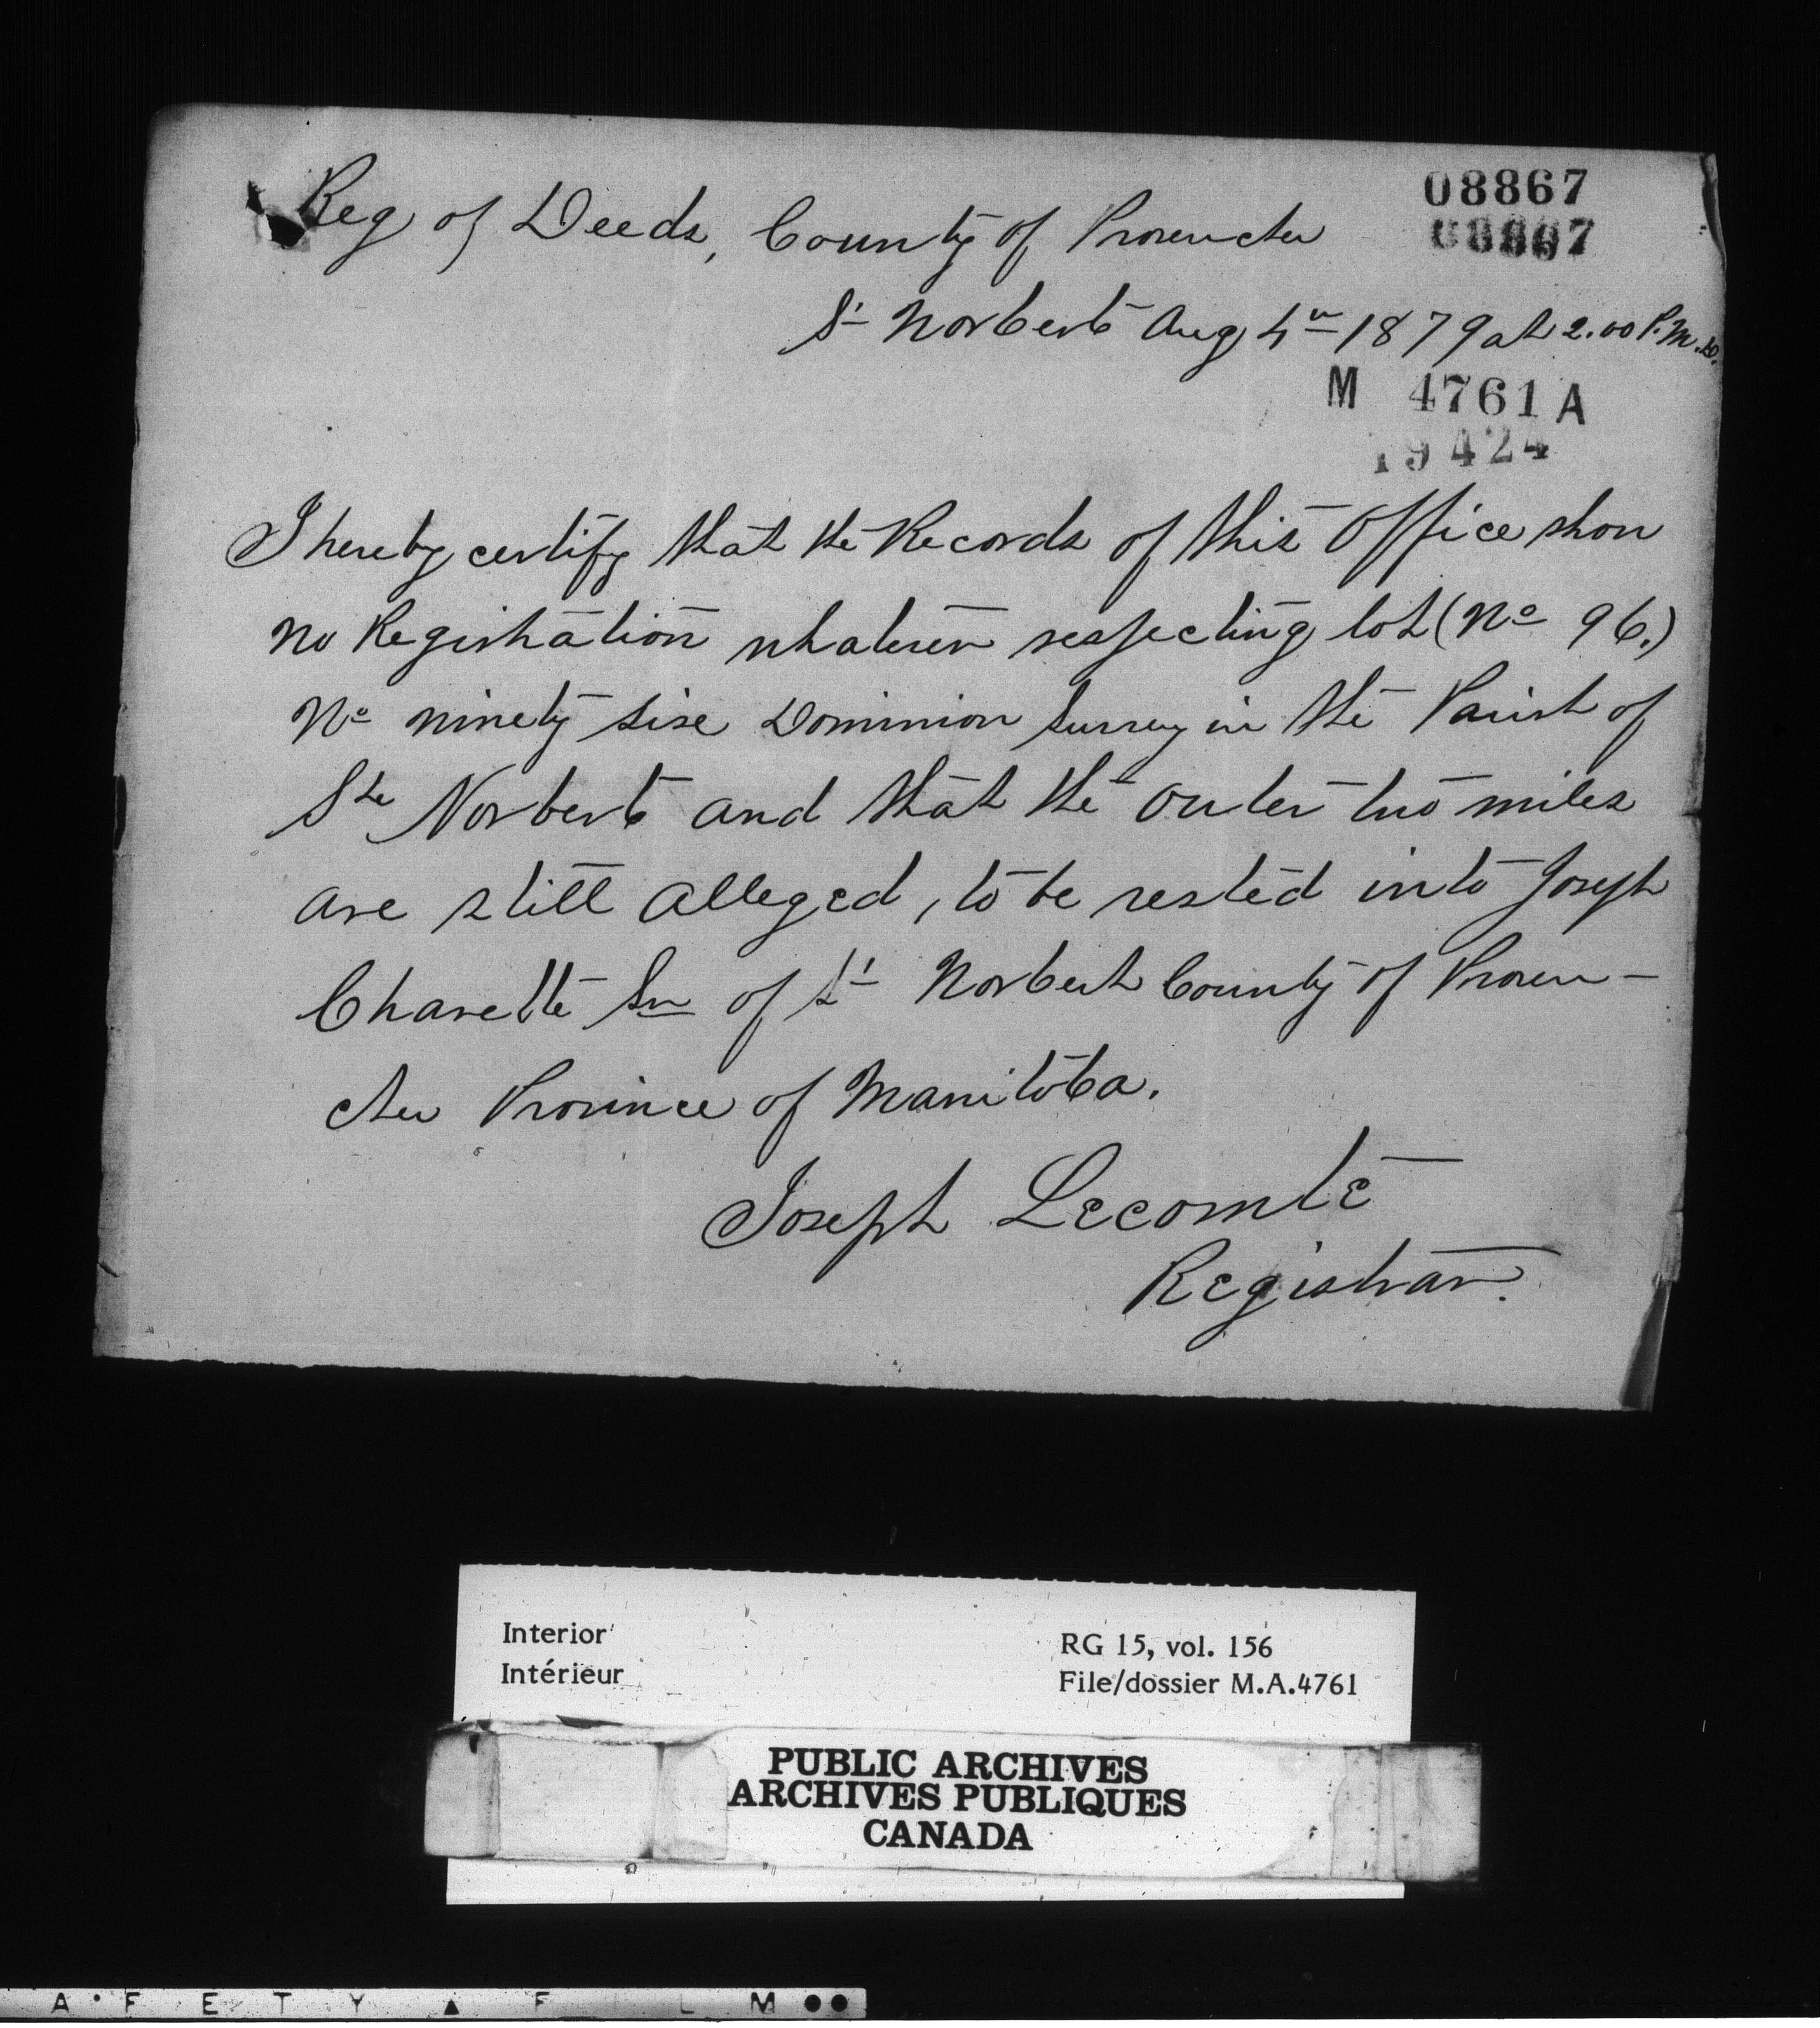 Reg of Deeds, County of Provencher
08867
08867
St Norbert Aug 4th 1879 at 2.00 P.M.
M 4761 A
19424
I hereby certify that the Records of this Office show
no Registration whatever respecting lot (No 96.)
No ninety sixe Dominion Survey in the Parish of
Ste Norbert and that the outer two miles
are still alleged, to be vested into Joseph
Charette Sr of St Norbert County of Proven-
cher Province of Manitoba.
Joseph Lecomte
Registrar.
Interior
Intérieur
RG 15, vol. 156
File/dossier M.A.4761
PUBLIC ARCHIVES
ARCHIVES PUBLIQUES
CANADA
A F E T Y F I L M